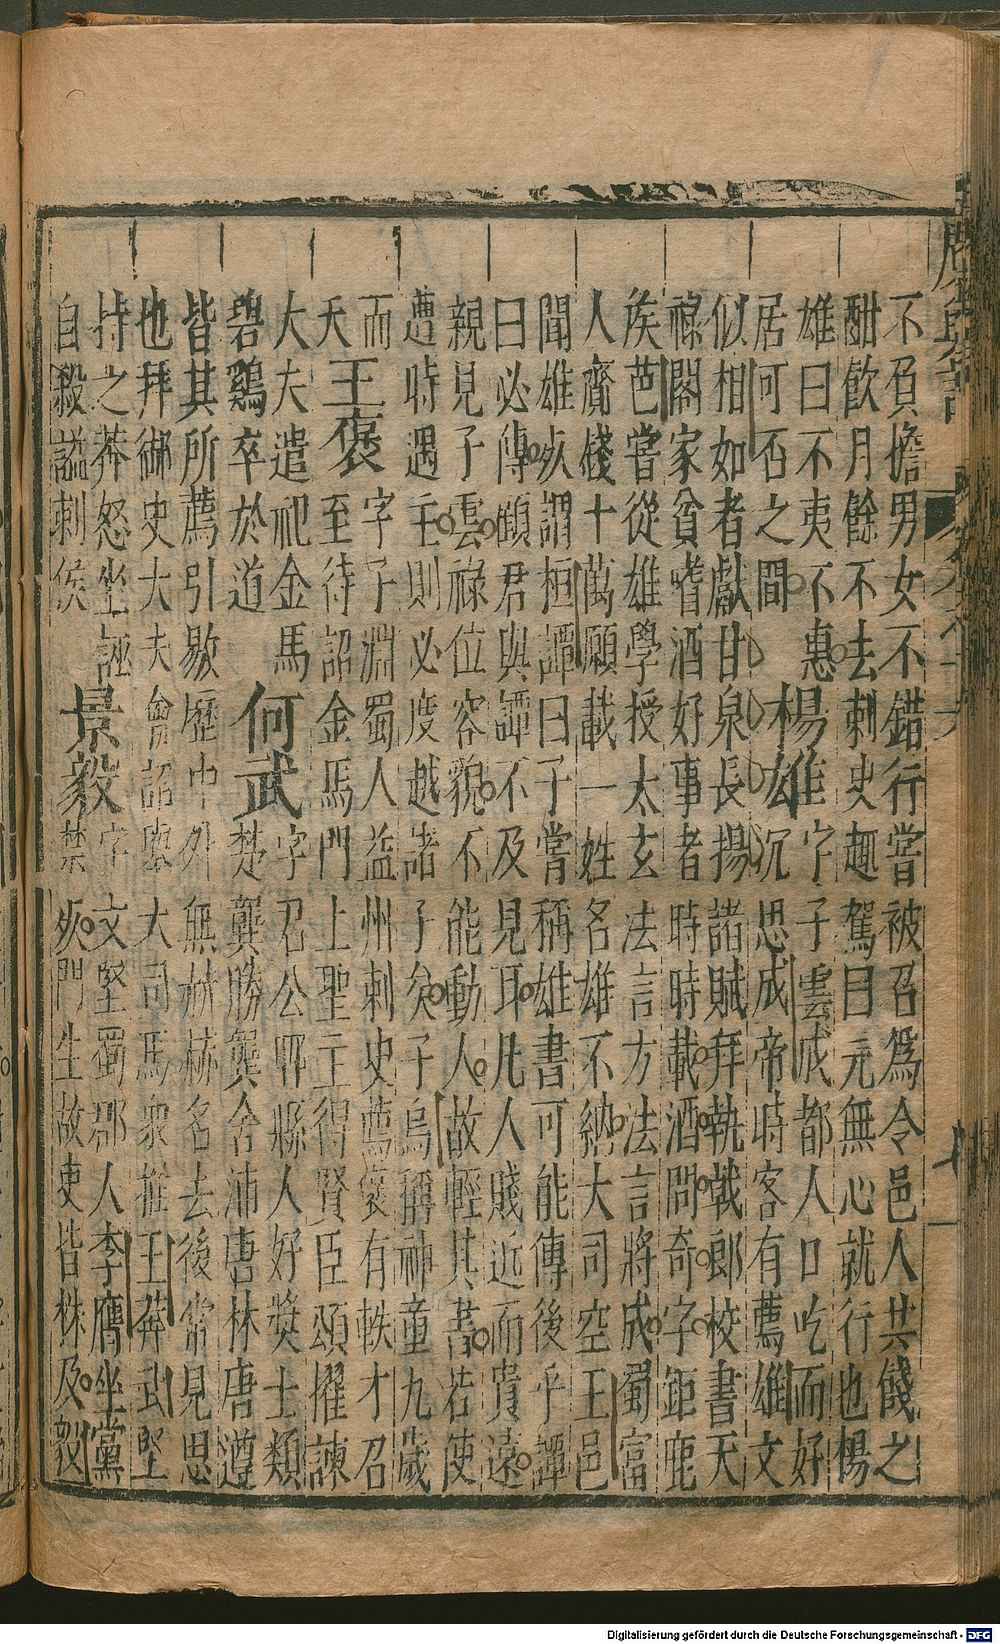 不負擔男女不錯行嘗被召爲令邑人共餞之
酣飲月餘不去刺史趣駕曰元無心就行也楊
雄曰不夷不惠
居可否之間
楊雄
字子雲成都人口吃而好
沉思成帝時客有薦雄文
似相如者獻甘泉長揚諸賦拜執戟郎校書天
祿閣家貧嗜酒好事者時時載酒問奇字鉅鹿
侯芭嘗從雄學授太玄法言方法言將成蜀富
人齎錢十萬願載一姓名雄不納大司空王邑
聞雄歿謂桓譚曰子嘗稱雄書可能傳後乎譚
曰必傳顧君與譚不及見耳凡人賤近而貴遠
親見子雲祿位容貌不能動人故輕其書若使
遭時遇主則必度越諸子矣子烏稱神童九歲
而
夭
王褒
字子淵蜀人益州刺史薦褒有軼才召
至待詔金馬門上聖主得賢臣頌擢諫
大夫遣祀金馬
碧鷄卒於道
何武
字君公郫縣人好奬士類
楚龔勝龔舍沛唐林唐遵
皆其所薦引敭歷中外無赫赫名去後常見思
也拜御史大夫會詔舉大司馬衆推王莽武堅
持之莽怒坐誣
自殺謚刺侯
景毅
字文堅蜀郡人李膺坐黨
禁歿門生故吏皆株及毅